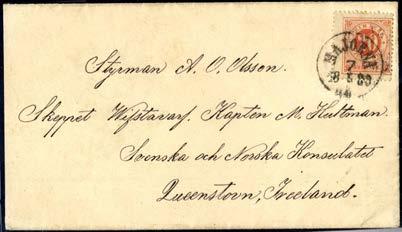 MAJORNA
7
Styrman A. O. Olsson.
Skeppet Wifstavarf. Kapten M. Hultman.
Svenska och Norska Konsulatet
Queenstovn, Ireeland.